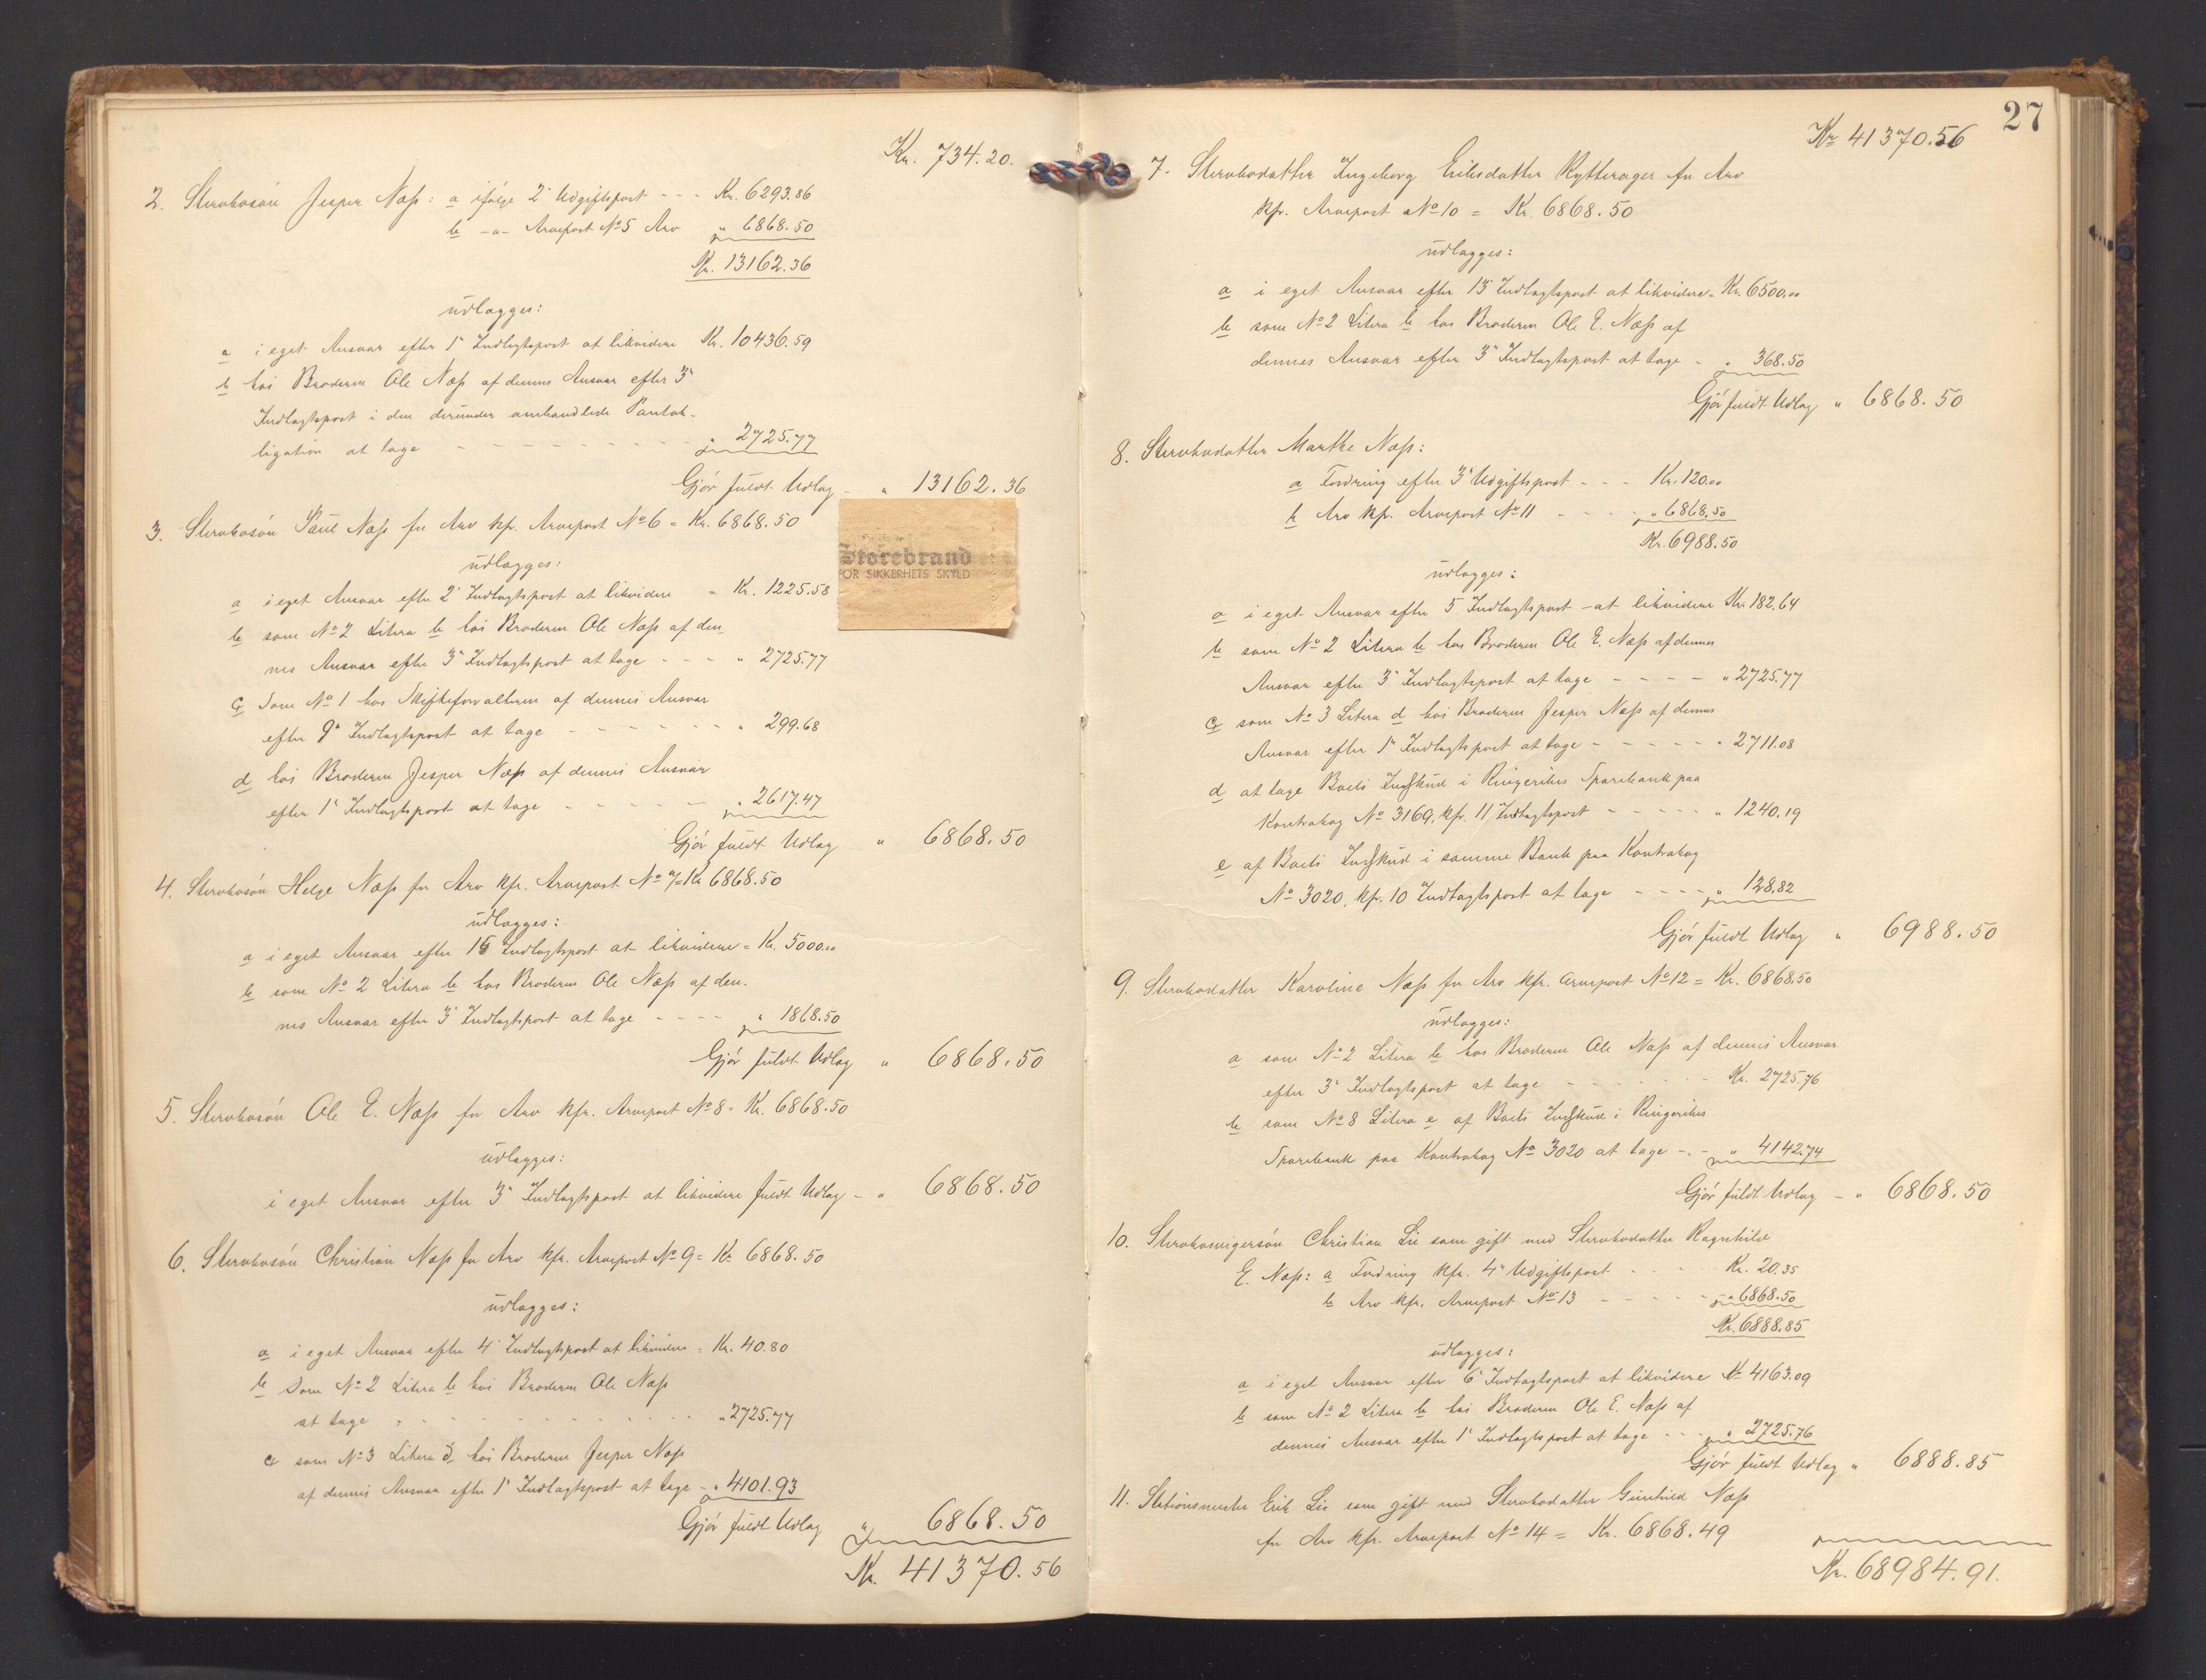 Kr. 734.20.
2. Stervbosøn Jesper Næss: a ifølge 2' Udgiftspost - - - Kr. 6293.86
b -"- Arvepost No 5 Arv " 6868.50
Kr. 13162.36
udlægges:
a i eget Ansvar efter 1' Indtægtspost at likvidere Kr. 10436.59
b hos Broderen Ole Næss af dennes Ansvar efter 3'
Indtægtspost i den derunder omhandlede Pantob-
ligation at tage - - - - - - - - - " 2725.77
Gjør fuldt Udlæg - " 13162.36
3. Stervbosøn Paul Næss for Arv kfr. Arvepost No 6 = Kr. 6868.50
Storebrand
FOR SIKKERHETS SKYLD
udlægges:
a i eget Ansvar efter 2' Indtægtspost at likvidere = Kr. 1225.58
b som No 2 Litera b hos Broderen Ole Næss af den-
nes Ansvar efter 3' Indtægtspost at tage - - - - " 2725.77
c Som No 1 hos Skifteforvalteren af dennes Ansvar
efter 9' Indtægtspost at tage - - - - - - " 299.68
d hos Broderen Jesper Næss af dennes Ansvar
efter 1' Indtægtspost at tage - - - - - - " 2617.47
Gjør fuldt Udlæg " 6868.50
4. Stervbosøn Helge Næss for Arv kfr. Arvepost No 7 = Kr 6868.50
udlægges:
a i eget Ansvar efter 15 Indtægtspost at likvidere = Kr. 5000.00
b som No 2 Litera b hos Broderen Ole Næss af den-
nes Ansvar efter 3' Indtægtspost at tage - - - - " 1868.50
Gjør fuldt Udlæg " 6868.50
5. Stervbosøn Ole E. Næss for Arv kfr. Arvepost No 8 = Kr. 6868.50
udlægges:
i eget Ansvar efter 3' Indtægtspost at likvidere fuldt Udlæg - " 6868.50
6. Stervbosøn Christian Næss for Arv kfr. Arvepost No 9 = Kr 6868.50
udlægges:
a i eget Ansvar efter 4' Indtægtspost at likvidere = Kr. 40.80
b Som No 2 Litera b hos Broderen Ole Næss
at tage - - - - - - - - - - " 2725.77
c som No 3 Litera d hos Broderen Jesper Næss
af dennes Ansvar efter 1' Indtægtspost at tage - " 4101.93
Gjør fuldt Udlæg " 6868.50
Kr. 41370.56
27
Kr 41370.56
7. Stervbodatter Ingeborg Eriksdatter Rytterager for Arv
kfr. Arvepost No 10 = Kr. 6868.50
udlægges:
a i eget Ansvar efter 13' Indtægtspost at likvidere = Kr. 6500.00
b som No 2 Litera b hos Broderen Ole E. Næss af
dennes Ansvar efter 3' Indtægtspost at tage - " 368.50
Gjør fuldt Udlæg " 6868.50
8. Stervbodatter Marthe Næss:
a Fordring efter 3' Udgiftspost - - - Kr. 120.00
b Arv kfr. Arvepost No 11 - - - - " 6868.50
Kr. 6988.50
udlægges:
a i eget Ansvar efter 5 Indtægtspost - at likvidere Kr. 182.64
b som No 2 Litera b hos Broderen Ole E. Næss af dennes
Ansvar efter 3' Indtægtspost at tage - - - - " 2725.77
c som No 3 Litera d hos Broderen Jesper Næss af dennes
Ansvar efter 1' Indtægtspost at tage - - - - - " 2711.08
d at tage Boets Indskud i Ringerikes Sparebank paa
Kontrabog No 3169, kfr. 11 Indtægtspost - - - - - " 1240.19
e af Boets Indskud i samme Bank paa Kontrabog
No 3020, kfr. 10 Indtægtspost at tage - - - - " 128.82
Gjør fuldt Udlæg " 6988.50
9. Stervbodatter Karoline Næss for Arv kfr. Arvepost No 12 = Kr. 6868.50
udlægges:
a som No 2 Litera b hos Broderen Ole Næss af dennes Ansvar
efter 3' Indtægtspost at tage - - - - - - - Kr. 2725.76
b som No 8 Litera e af Boets Indskud i Ringerikes
Sparebank paa Kontrabog No 3020 at tage - - " 4142.74
Gjør fuldt Udlæg - " 6868.50
10. Stervbosvigersøn Christian Lie som gift med Stervbodatter Ragnhild
E. Næss: a Fordring kfr. 4' Udgiftspost - - - Kr. 20.35
b Arv kfr. Arvepost No 13 - - - - - " 6868.50
Kr. 6888.85
udlægges:
a i eget Ansvar efter 6' Indtægtspost at likvidere Kr 4163.09
b som No 2 Litera b hos Broderen Ole E. Næss af
dennes Ansvar efter 1' Indtægtspost at tage - - - " 2725.76
Gjør fuldt Udlæg " 6888.85
11. Stationsmester Erik Lie som gift med Stervbodatter Gunhild Næss
for Arv kfr. Arvepost No 14 = Kr. 6868.49
Kr. 68984.91.